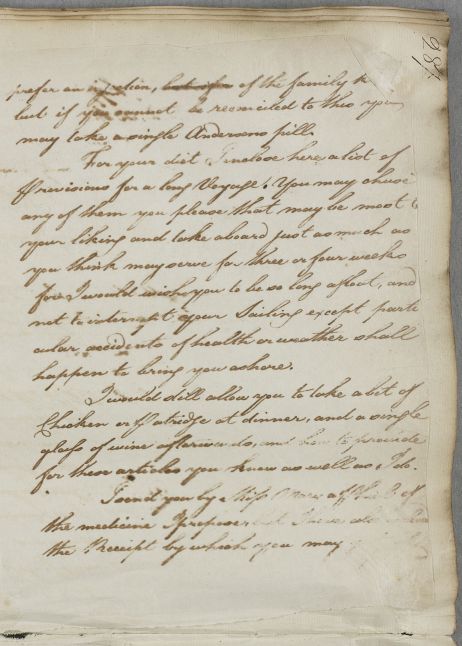 186
prefer an injection, of the family
but if you cannot be reconciled to this you
may take a single Andersons pill.
For your diet I inclose here a list of
Provisions for a long Voyage. You may chuse
any of them you please that may be most to
your liking and take aboard just as much as
you think may serve for three or four weeks
for I would wish you to be so long afloat, and
not to interrupt your Sailing except parti
cular accidents of health or weather shall
happen to bring you ashore.
I would still allow you to take a bit of
Chicken or Patridge at dinner, and a single
glass of wine afterwards, and how to provide
for these articles you know as well as I do.
I send you by Miss a of
the medicine I propose, but I have also
the Receipt by which you may